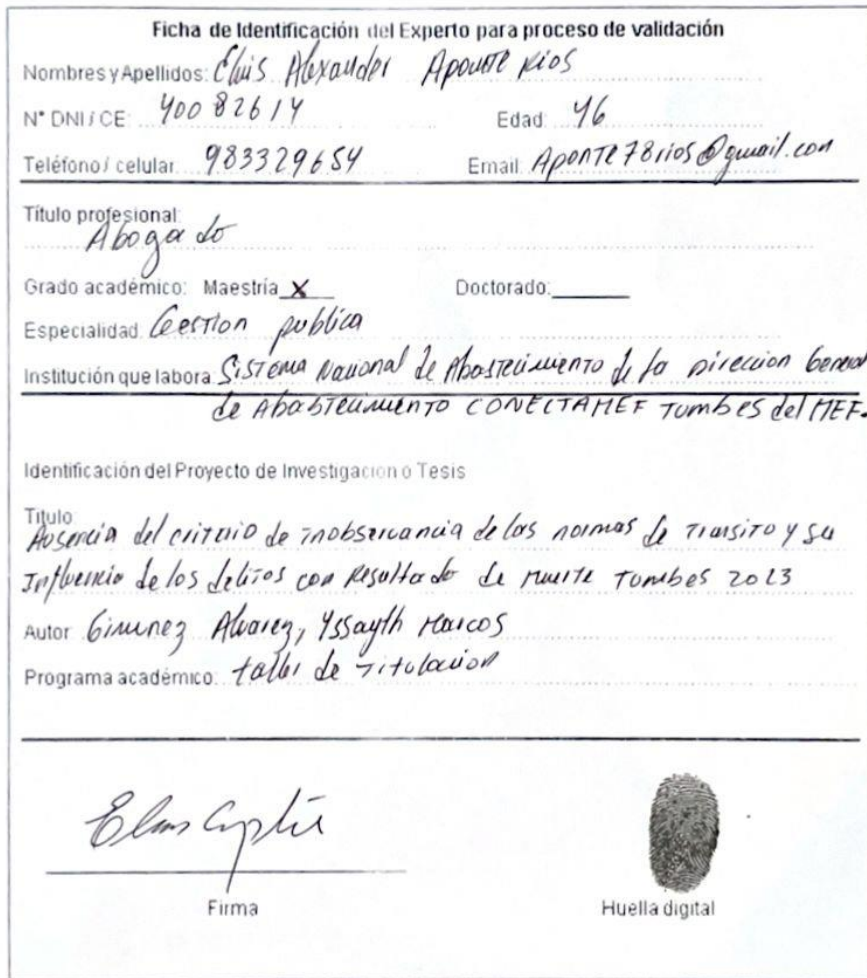 Ficha de Identificación del Experto para proceso de validación
Nombres y Apellidos: Elvis Alexander Aponte Rios
N° DNI / CE: 40082614 Edad: 46
Teléfono / celular: 983329654 Email: Aponte78rios@gmail.con
Título profesional:
Abogado
Grado académico: Maestría X Doctorado:
Especialidad: Gestion publica
Institución que labora: Sistema Nacional de Abastecimiento de la Direccion General
de Abastecimiento CONECTAMEF Tumbes del MEF.
Identificación del Proyecto de Investigacion o Tesis
Titulo:
Ausencia del criterio de inobservancia de las normas de transito y su
Influencia de los delitos con Resultado de muerte Tumbes 2023
Autor: Gimenez Alvarez, Yssayth Marcos
Programa académico: taller de Titulacion
Firma Huella digital